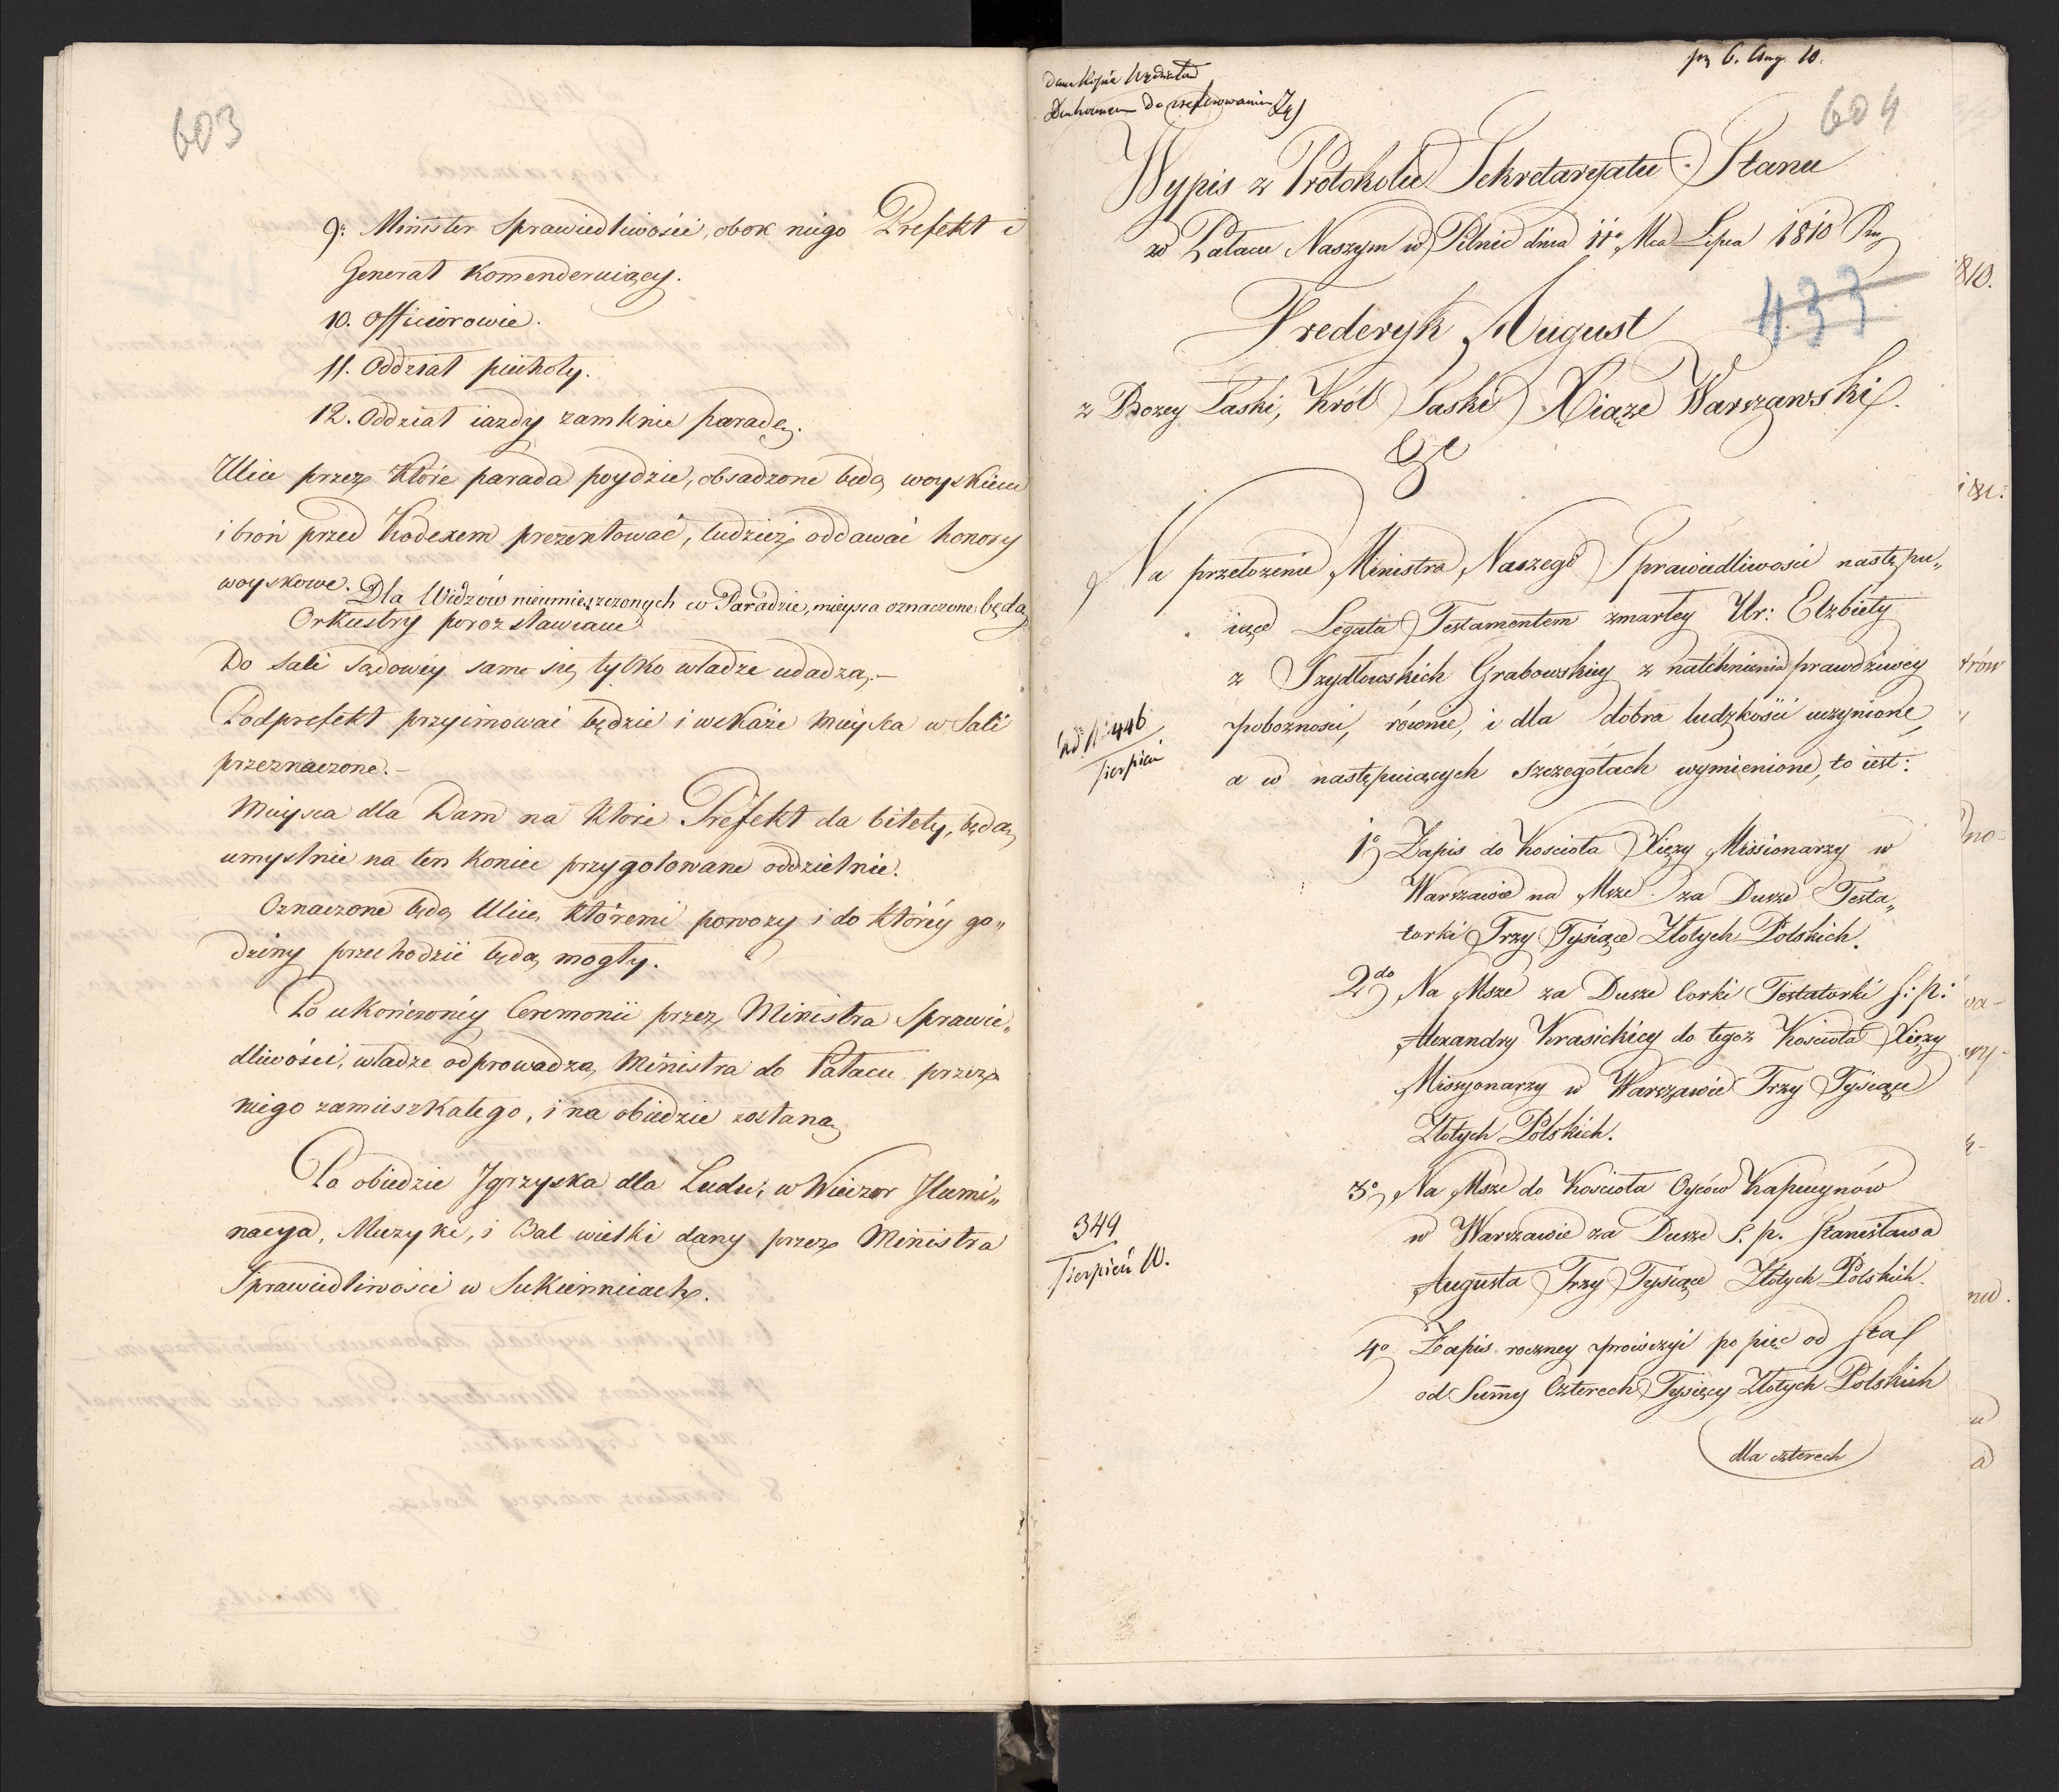 603
9: Minister Sprawiedliwości, obok niego Prefekt i
Generał Komenderuiący.
10. Officierowie.
11. Oddział piechoty.
12. Oddział iazdy zamknie paradę.
Ulice przez które parada poydzie, obsadzone będą woyskiem
i broń przed Kodexem prezentować, tudzież oddawać honory
woyskowe. Dla Widzów nieumieszczonych w Paradzie, mieysca oznaczone będą
Orkiestry porozstawiane
Do Sali Sądowéy same się tylko władze udadzą.-
Podprefekt przyimować będzie i wskaże mieysca w Sali
przeznaczone.-
Mieysca dla Dam na które Prefekt da bilety, będą
umyślnie na ten koniec przygotowane oddzielnie.
Oznaczone będą Ulice, któremi powozy i do któréy go„
dziny przechodzić będą mogły.
Po ukończonéy Ceremonii przez Ministra Sprawie„
dliwości, władze odprowadzą Ministra do Pałacu przez
niego zamieszkałego, i na obiedzie zostaną
Po obiedzie Jgrzyska dla Ludu, w Wieczor Jllumi„
nacya, Muzyki, i Bal wielki dany przez Ministra
Sprawiedliwości w Sukiennicach.
pr 6. Aug. 10.
dana kopia Wydziałowi
Duchownemu do zreferowania
604
Wypis z Protokołu Sekretaryatu Stanu
w Pałacu Naszym w Pilnic dnia 11o Mca Lipca 1810 Rm
433
Frederyk August
z Bozey Łaski, Król Saski Xiąze Warszawski.
&c
Na przełozenie Ministra Naszego Sprawiedliwosci następu„
iące Legata Testamentem zmarłey Ur: Elzbiety
z Szydłowskich Grabowskiey z natchnienia prawdziwey
pobozności, równie, i dla dobra ludzkości uczynione,
a w następuiących szczegółach wymienione, to iest:
ad No 446
Sierpień
1o Zapis do Kościoła Xięzy Missionarzy w
Warszawie na Msze za Dusze Testa„
torki Trzy Tysiące Złotych Polskich.
2do Na Msze za Dusze Corki Testatorki ś: p:
Alexandry Krasickiey do tegoz Kościoła Xięzy
Missyonarzy w Warszawie Trzy Tysiące
Złotych Polskich.
3o Na Msze do Kościoła Oyców Kapucynów
w Warszawie za Dusze ś. p. Stanisława
Augusta Trzy Tysiące Złotych Polskich.
349
Sierpień W.
4o Zapis roczney prowizyi po pięć od sta
od Summy Czterech Tysięcy Złotych Polskich
dla czterech